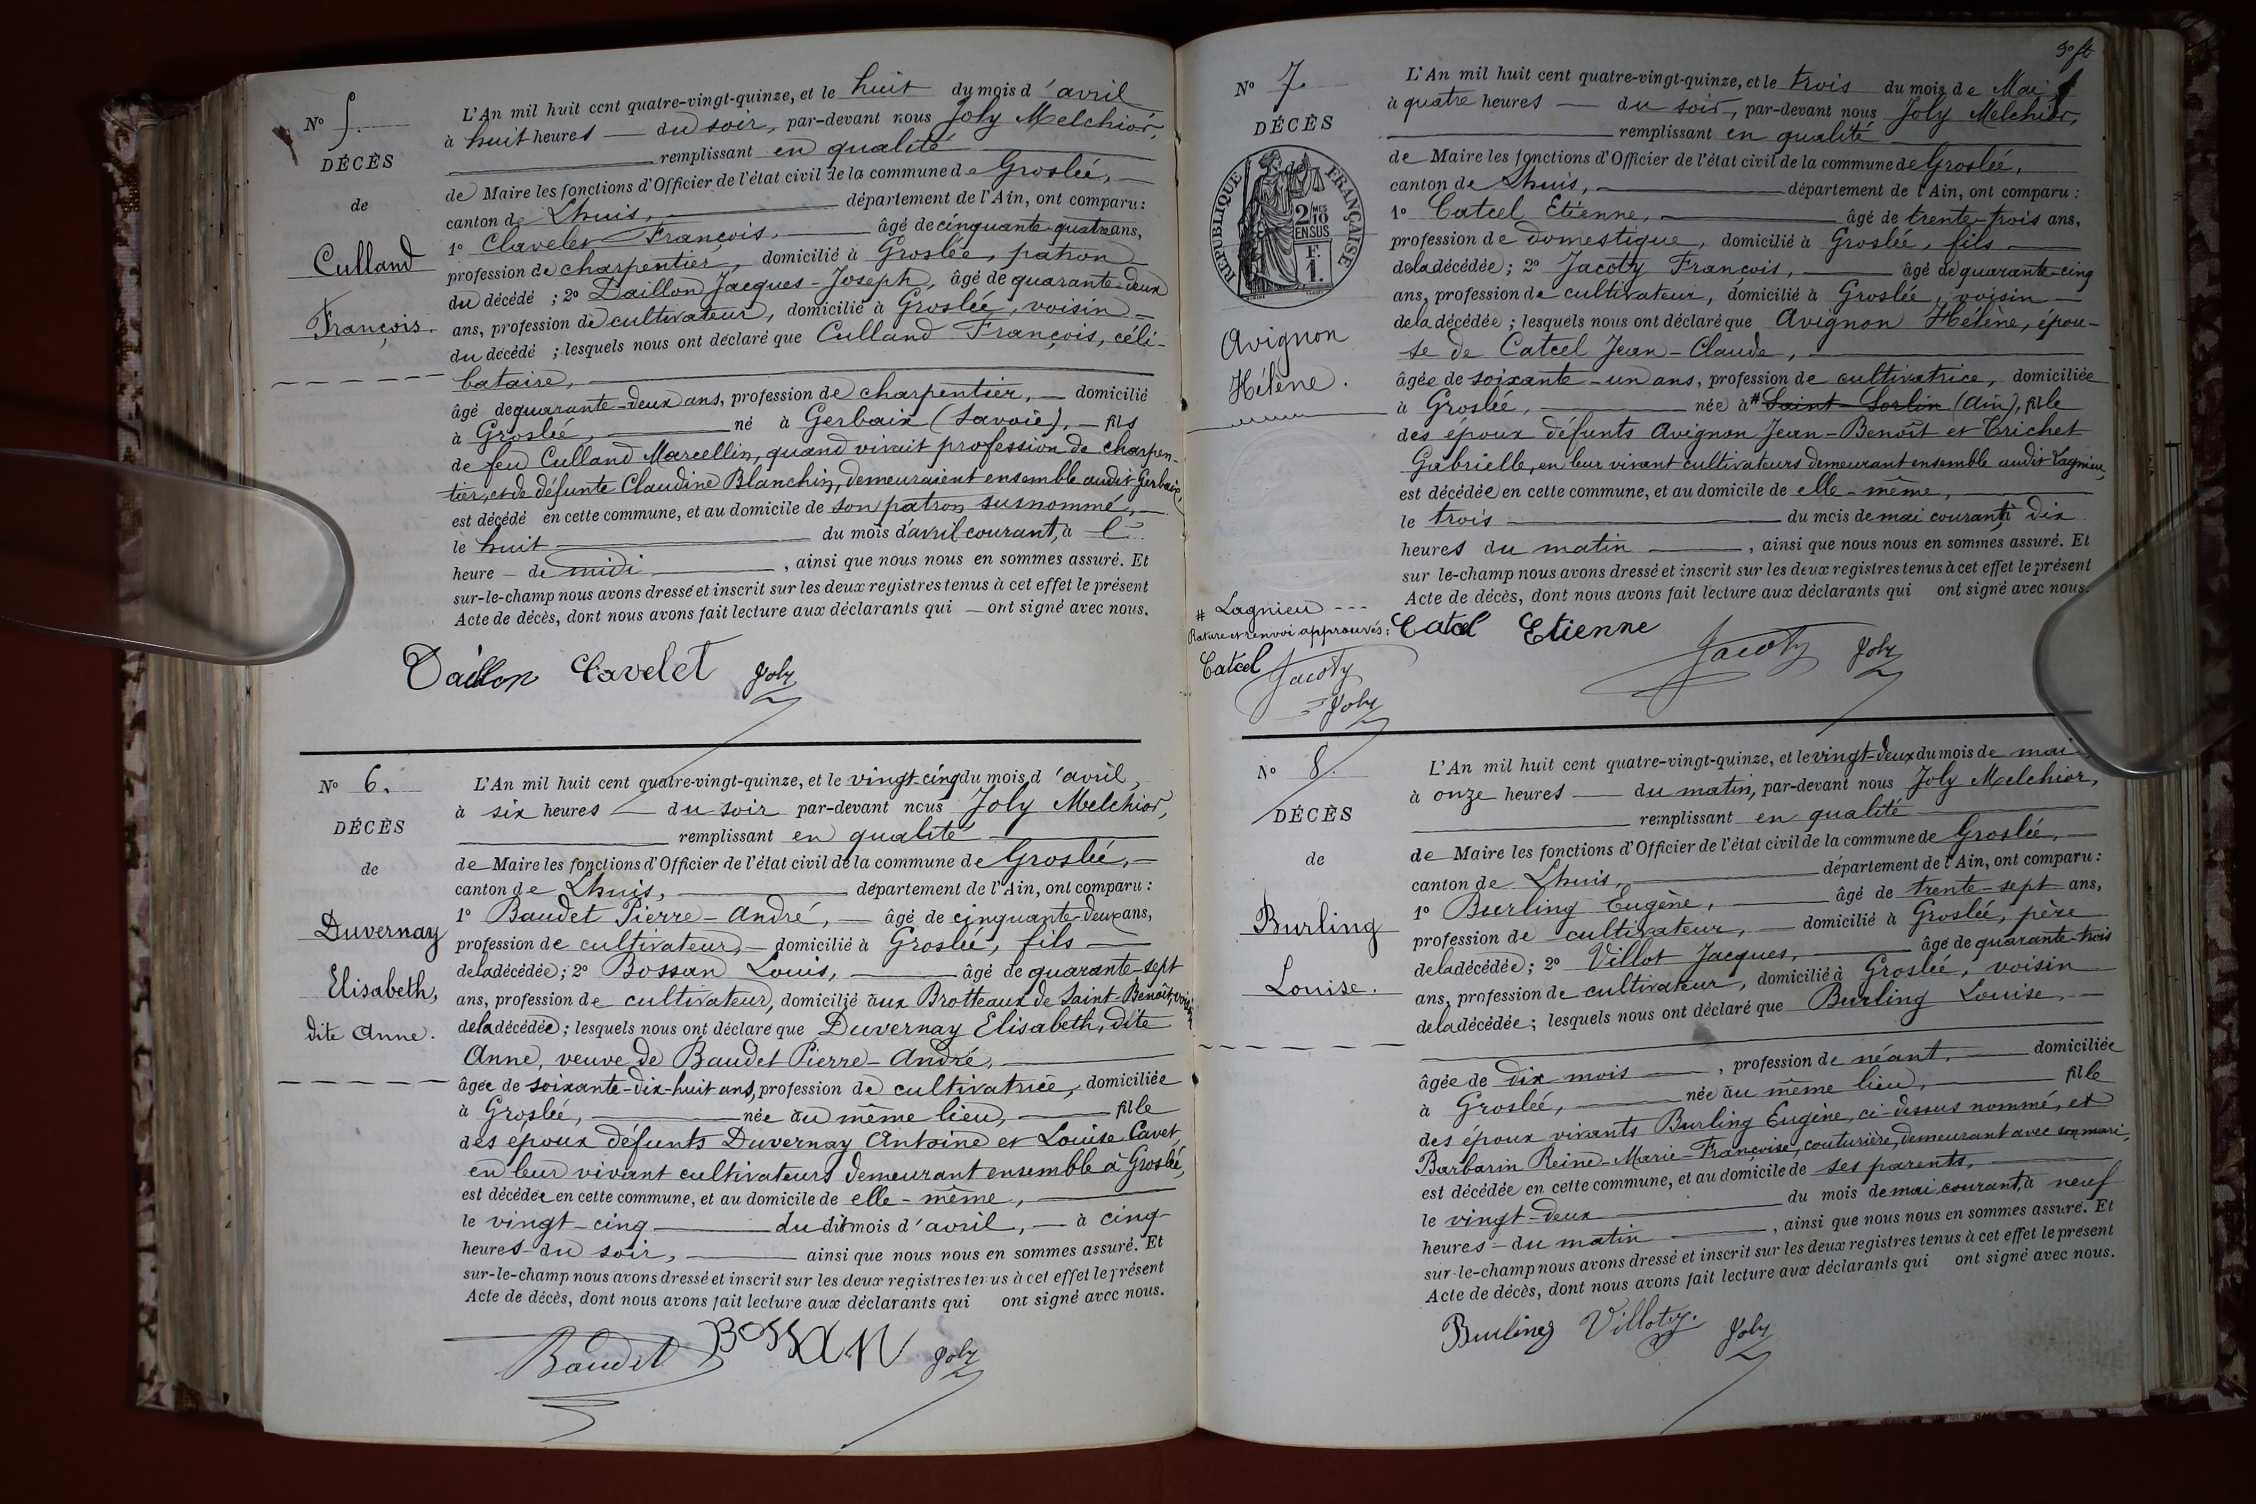 N° 5.
DÉCÈS
de
Culland
François.
L'An mil huit cent quatre-vingt-quinze, et le huit du mois d'avril
à huit heures du soir, par-devant nous Joly Melchior,
remplissant en qualité
de Maire les fonctions d'Officier de l'état civil de la commune de Groslée,
canton de Lhuis, département de l'Ain, ont comparu :
1° Clavelet François, âgé de cinquante-quatre ans,
profession de charpentier, domicilié à Groslée, patron
du décédé ; 2° Daillon Jacques-Joseph, âgé de quarante-deux
ans, profession de cultivateur, domicilié à Groslée, voisin
du décédé ; lesquels nous ont déclaré que Culland François, céli-
bataire,
âgé de quarante-deux ans, profession de charpentier, domicilié
à Groslée, né à Gerbaix (Savoie), fils
de feu Culland Marcellin, quand vivait profession de charpen-
tier, et de défunte Claudine Blanchin, demeuraient ensemble audit Gerbaix,
est décédé en cette commune, et au domicile de son patron susnommé,
le huit du mois d'avril courant, à
heure de midi, ainsi que nous nous en sommes assuré. Et
sur-le-champ nous avons dressé et inscrit sur les deux registres tenus à cet effet le présent
Acte de décès, dont nous avons fait lecture aux déclarants qui ont signé avec nous.
Daillon Clavelet Joly
N° 6.
DÉCÈS
de
Duvernay
Elisabeth,
dite Anne.
L'An mil huit cent quatre-vingt-quinze, et le vingt-cinq du mois d'avril,
à six heures du soir par-devant nous Joly Melchior,
remplissant en qualité
de Maire les fonctions d'Officier de l'état civil de la commune de Groslée,
canton de Lhuis, département de l'Ain, ont comparu :
1° Baudet Pierre-André, âgé de cinquante-deux ans,
profession de cultivateur, domicilié à Groslée, fils
de la décédée ; 2° Bossan Louis, âgé de quarante-sept
ans, profession de cultivateur, domicilié aux Brotteaux de Saint-Benoît, voisin
de la décédée ; lesquels nous ont déclaré que Duvernay Elisabeth, dite
Anne, veuve de Baudet Pierre-André,
âgée de soixante-dix-huit ans, profession de cultivatrice, domiciliée
à Groslée, née au même lieu, fille
des époux défunts Duvernay Antoine et Louise Cavet
en leur vivant cultivateurs demeurant ensemble à Groslée,
est décédée en cette commune, et au domicile de elle-même,
le vingt-cinq du dit mois d'avril, à cinq
heures du soir, ainsi que nous nous en sommes assuré. Et
sur-le-champ nous avons dressé et inscrit sur les deux registres tenus à cet effet le présent
Acte de décès, dont nous avons fait lecture aux déclarants qui ont signé avec nous.
Baudet BOSSAN Joly
N° 7.
DÉCÈS
de
RÉPUBLIQUE FRANÇAISE
2/10
MES
EN SUS
F.
1.
Avignon
Hélène.
L'An mil huit cent quatre-vingt-quinze, et le trois du mois de Mai,
à quatre heures du soir, par-devant nous Joly Melchior,
remplissant en qualité
de Maire les fonctions d'Officier de l'état civil de la commune de Groslée,
canton de Lhuis, département de l'Ain, ont comparu :
1° Catcel Etienne, âgé de trente-trois ans,
profession de domestique, domicilié à Groslée, fils
de la décédée ; 2° Jacoty François, âgé de quarante-cinq
ans, profession de cultivateur, domicilié à Groslée, voisin
de la décédée ; lesquels nous ont déclaré que Avignon Hélène, épou-
se de Catcel Jean-Claude,
âgée de soixante-un ans, profession de cultivatrice, domiciliée
à Groslée, née à # Saint-Sorlin (Ain), fille
des époux défunts Avignon Jean-Benoît et Trichet
Gabrielle, en leur vivant cultivateurs demeurant ensemble audit Lagnieu,
est décédée en cette commune, et au domicile de elle-même,
le trois du mois de mai courant, à dix
heures du matin, ainsi que nous nous en sommes assuré. Et
sur le-champ nous avons dressé et inscrit sur les deux registres tenus à cet effet le présent
Acte de décès, dont nous avons fait lecture aux déclarants qui ont signé avec nous.
# Lagnieu
Rature et renvoi approuvés :
Catcel Jacoty
Joly
Catcel Etienne Jacoty Joly
N° 8.
DÉCÈS
de
Burling
Louise.
L'An mil huit cent quatre-vingt-quinze, et le vingt-deux du mois de mai,
à onze heures du matin, par-devant nous Joly Melchior,
remplissant en qualité
de Maire les fonctions d'Officier de l'état civil de la commune de Groslée,
canton de Lhuis, département de l'Ain, ont comparu :
1° Burling Eugène, âgé de trente-sept ans,
profession de cultivateur, domicilié à Groslée, père
de la décédée ; 2° Villot Jacques, âgé de quarante-trois
ans, profession de cultivateur, domicilié à Groslée, voisin
de la décédée ; lesquels nous ont déclaré que Burling Louise,
âgée de dix mois, profession de néant, domiciliée
à Groslée, née au même lieu, fille
des époux vivants Burling Eugène, ci-dessus nommé, et
Barbarin Reine-Marie-Françoise, couturière, demeurant avec son mari,
est décédée en cette commune, et au domicile de ses parents,
le vingt-deux du mois de mai courant, à neuf
heures du matin, ainsi que nous nous en sommes assuré. Et
sur-le-champ nous avons dressé et inscrit sur les deux registres tenus à cet effet le présent
Acte de décès, dont nous avons fait lecture aux déclarants qui ont signé avec nous.
Burling Villot Joly